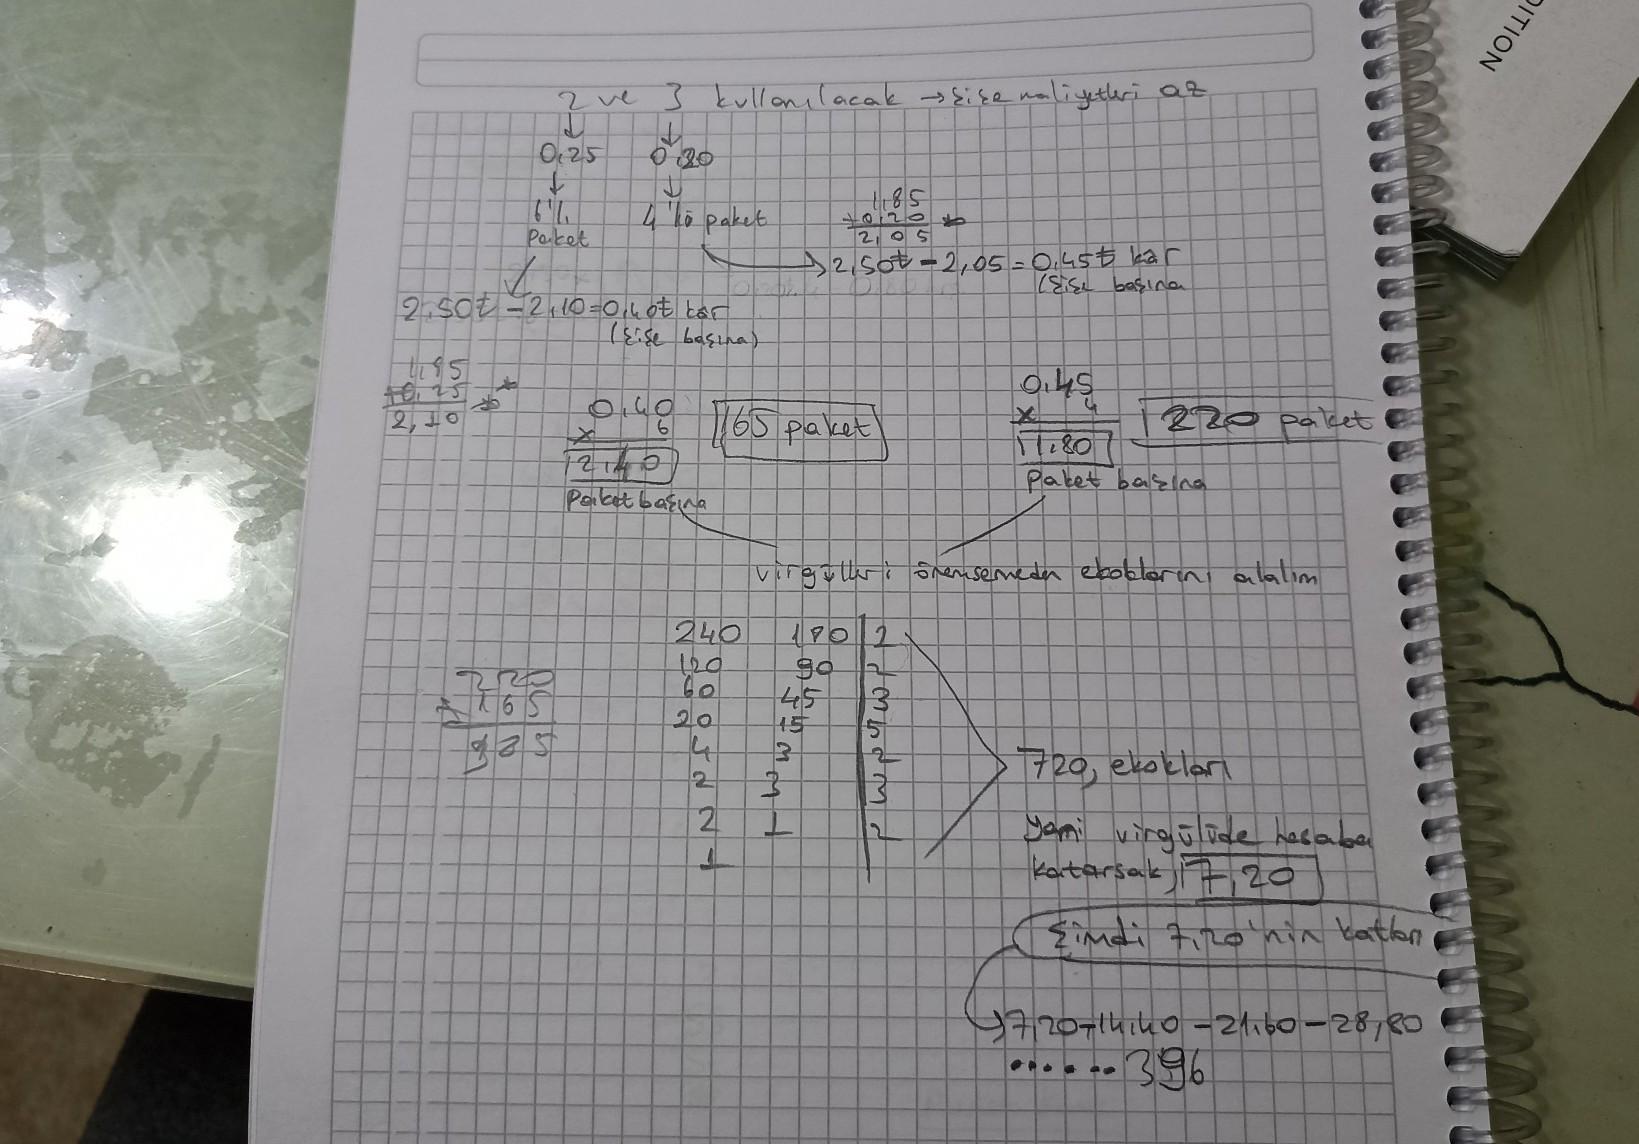 2 ve 3 kullanılacak → şişe maliyetleri az
↓ ↓
0,25 0,20
↓ ↓
6'lı 4'lü paket
Paket
1,85
+0,20
2,05
2,50₺ - 2,05 = 0,45₺ kar
(şişe başına
2,50₺ - 2,10 = 0,40₺ kar
(şişe başına)
1,85
+0,25
2,10
0,40
x 6
2,40
Paket başına
165 paket
0,45
x 4
1,80
Paket başına
220 paket
virgülleri önemsemeden ekoklarını alalım
240 180 2
120 90 2
60 45 3
20 15 5
4 3 2
2 3 3
2 1 2
1
220
+ 165
385
720, ekokları
yani virgülüde hesaba
katarsak, 7,20
Şimdi 7,20'nin katları
7,20-14,40-21,60-28,80
...... 396
DITION